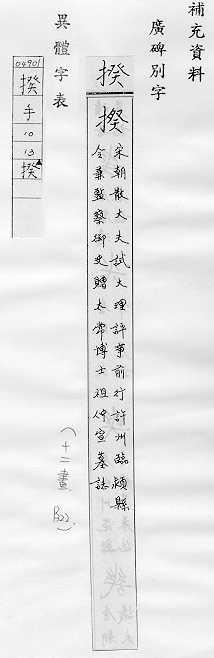 補充資料
廣碑別字
揆
揆
宋朝散大夫試大理評事前行許州臨潁縣
令兼監察御史贈太常博士祖仲宣墓誌
(十二畫 B22.)
異體字表
04901
揆
手
10
13
揆